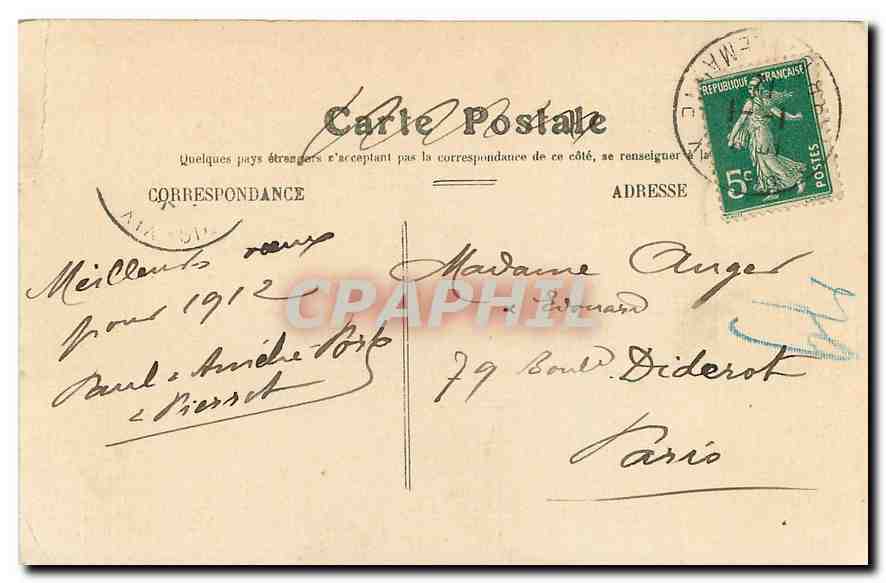 Carte Postale
Quelques pays étrangers n'acceptant pas la correspondance de ce côté, se renseigner à la
CORRESPONDANCE
ADRESSE
REPUBLIQUE FRANÇAISE
5c
POSTES
Meilleurs vœux
pour 1912
Paul &
& Pierrot
Madame Anger
& Edouard
79 Boul. Diderot
Paris
CPAPHIL